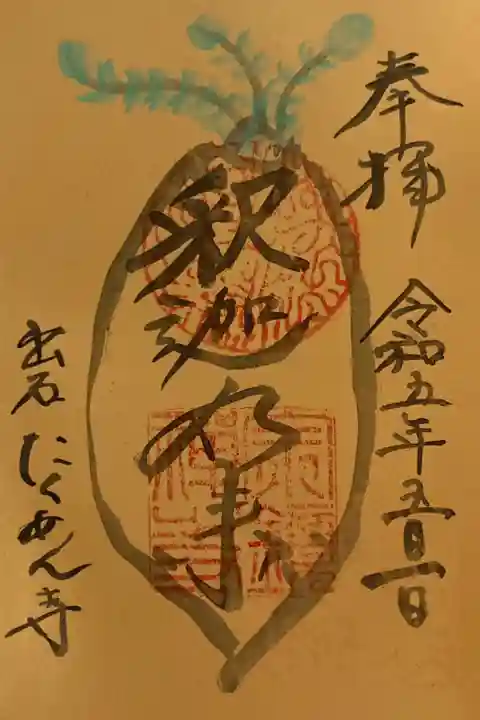 奉拝
令和五年五月一日
釈迦如来
出石 たくあん寺